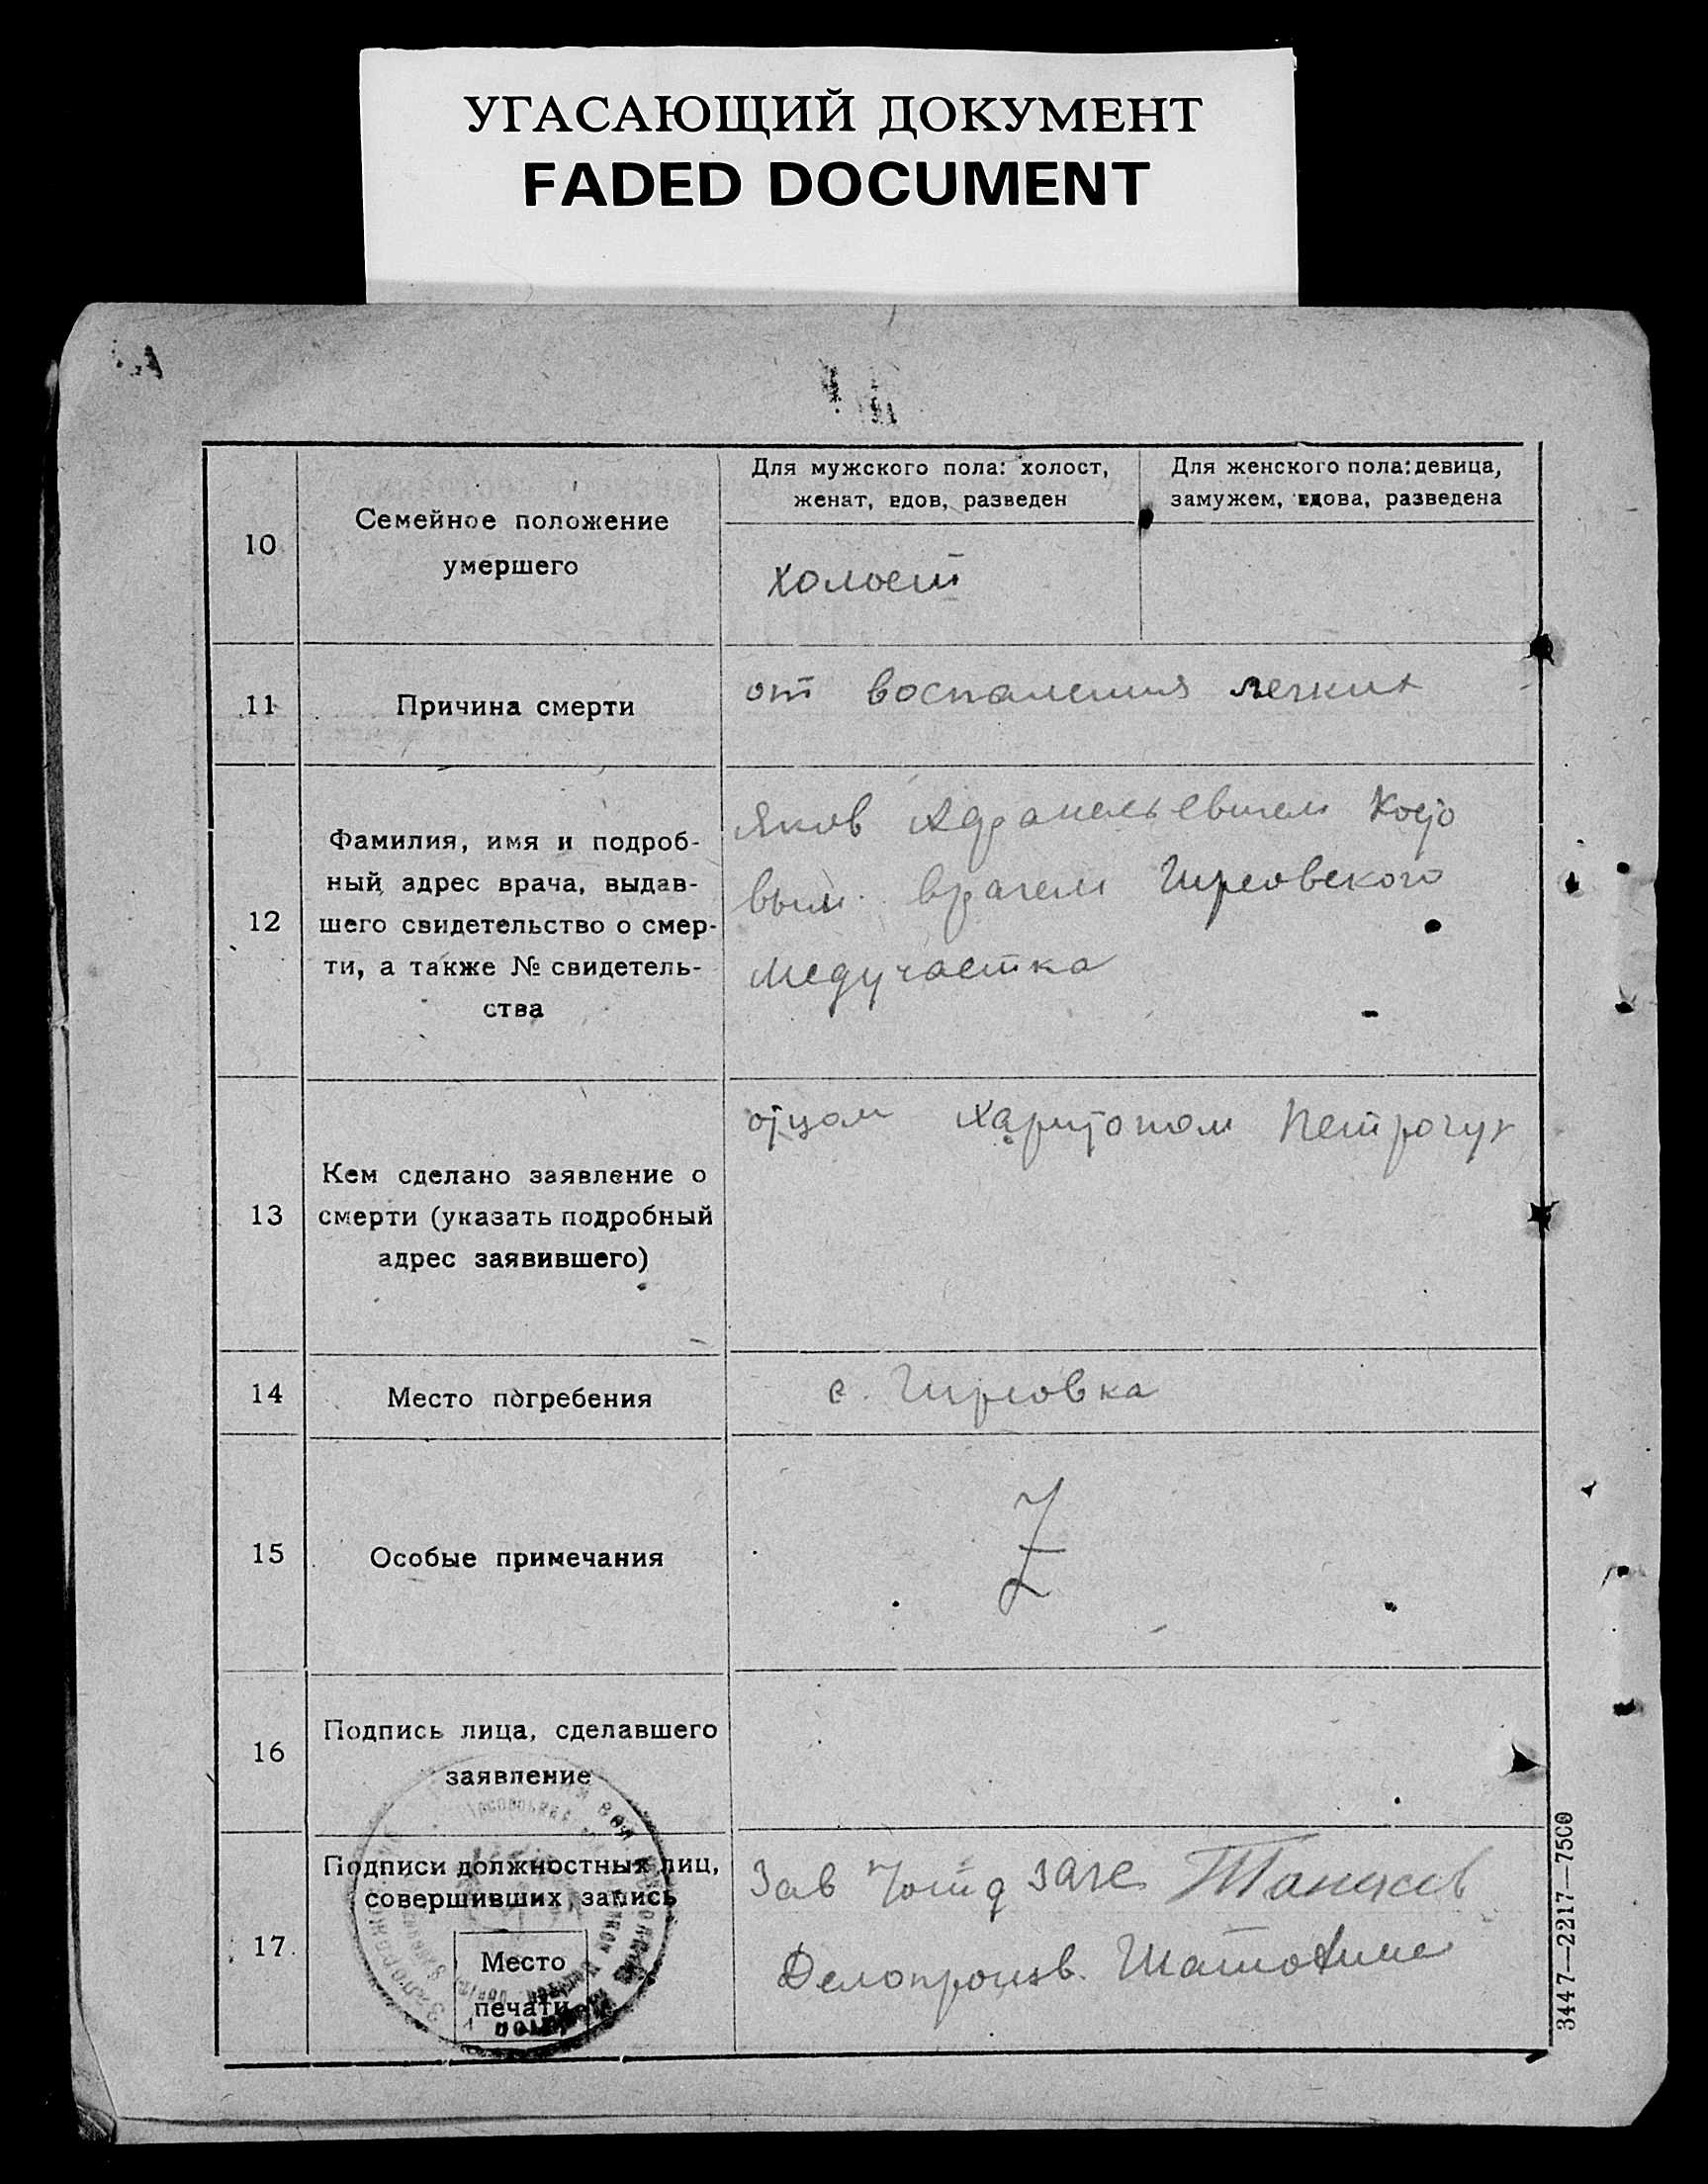 УГАСАЮЩИЙ ДОКУМЕНТ
FADED DOCUMENT
10
Семейное положение
умершего
Для мужского пола: холост,
женат, вдов, разведен
Для женского пола: девица,
замужем, вдова, разведена
холост
11
Причина смерти
от воспаления легких
12
Фамилия, имя и подроб-
ный адрес врача, выдав-
шего свидетельство о смер-
ти, а также № свидетель-
ства
Яков
вым врачем Гирсовского
медучастка
13
Кем сделано заявление о
смерти (указать подробный
адрес заявившего)
отцом Харитоном Петрочук
14
Место погребения
с. Гирсовка
15
Особые примечания
Z
16
Подпись лица, сделавшего
заявление
17
Подписи должностных лиц,
совершивших запись
Место
печати
Зав
Делопроизв.
3447—2217—7500